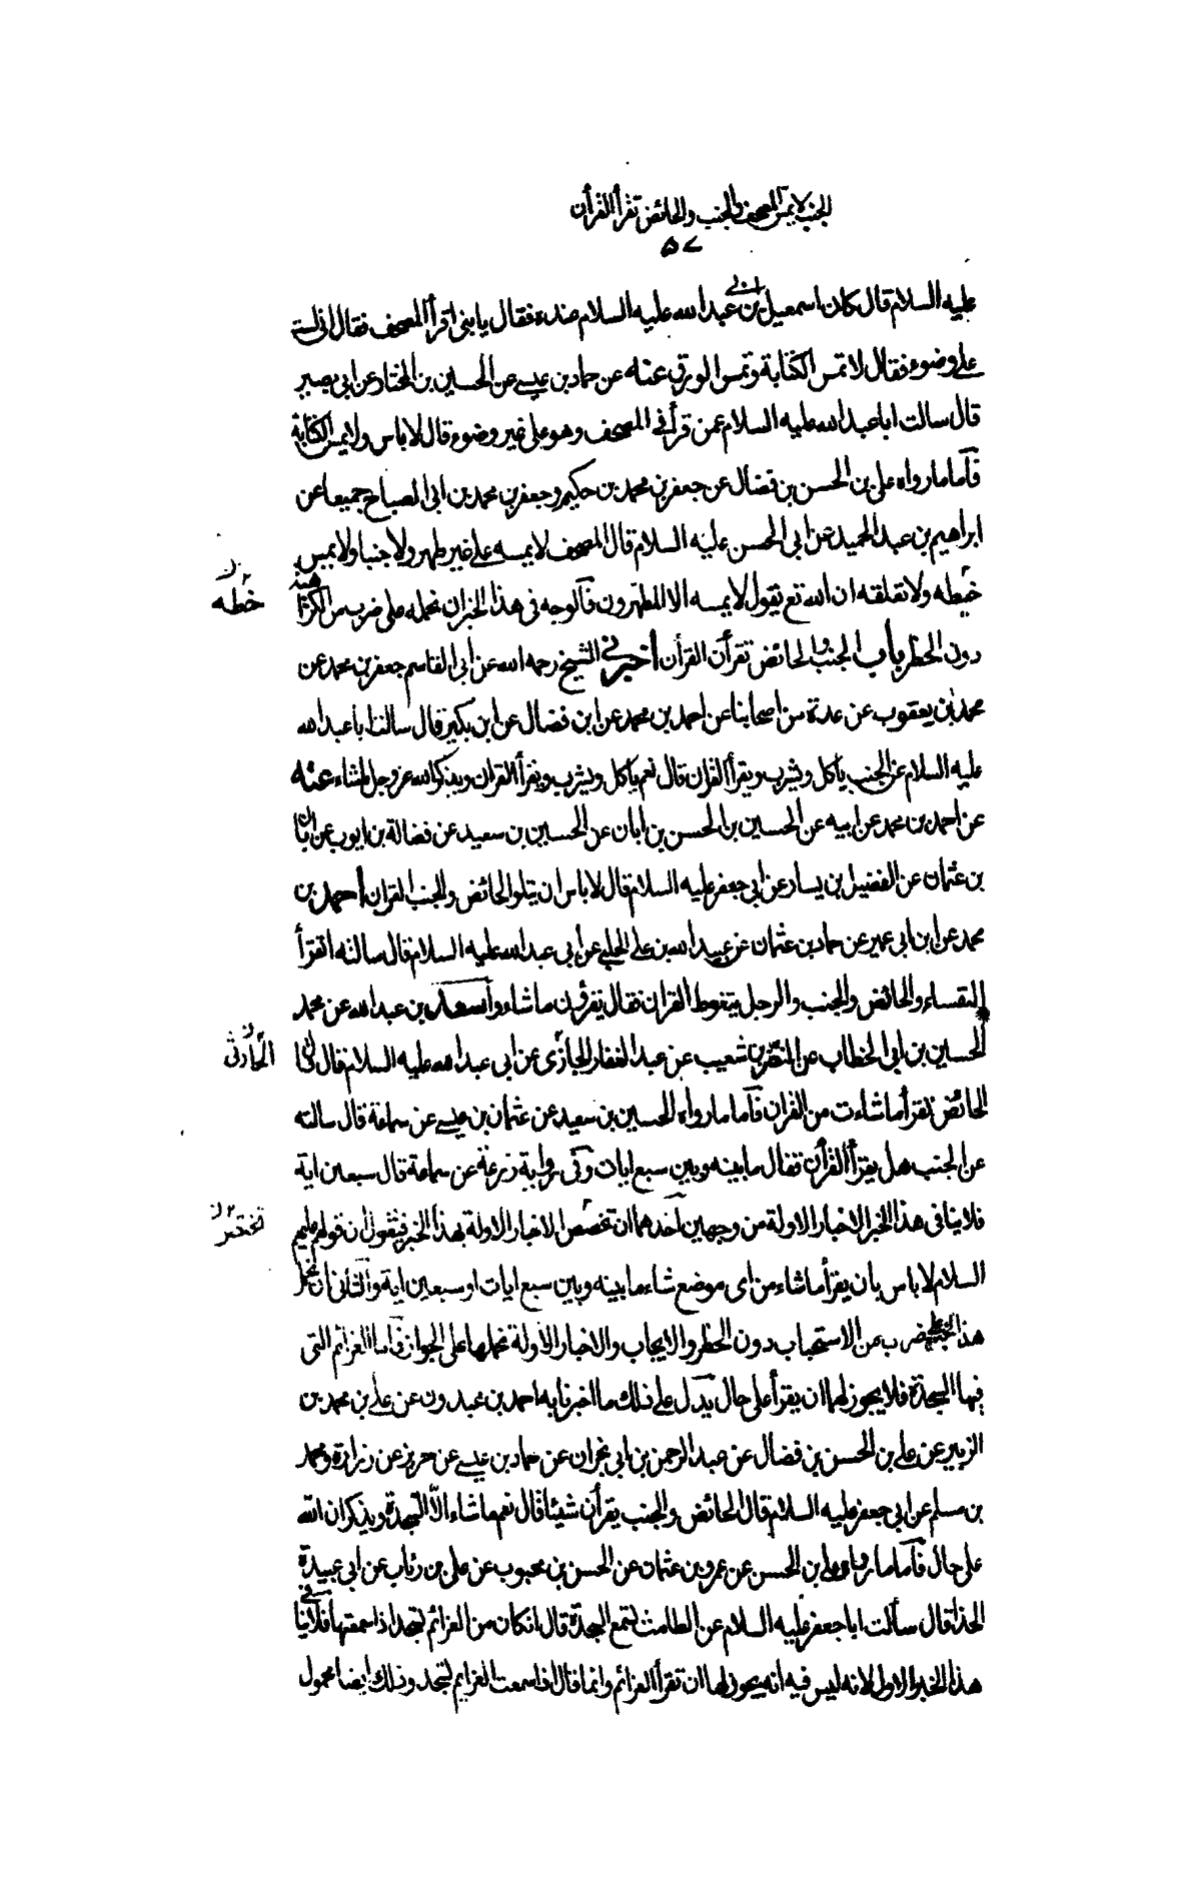 الجنب لا يمس المصحف والجنب والحائض تقرأ القرأن
٥٧
عليه السلام قال كان اسمعيل بن ابي عبد الله عليه السلام عنده فقال يا بنى اقرأ المصحف فقال انى لست
على وضوء فقال لا تمس الكتابة وتمس الورق عنه عن حماد بن عيسى عن الحسين بن المختار عن ابى بصير
قال سالت ابا عبد الله عليه السلام عمن قرأ فى المصحف وهو على غير وضوء قال لا باس ولا يمس الكتابة
فاما ما رواه على بن الحسن بن فضال عن جعفر بن محمد بن حكيم وجعفر بن محمد بن ابى الصباح جميعا عن
ابراهيم بن عبد الحميد عن ابى الحسن عليه السلام قال المصحف لا يمسه على غير طهر ولا جنبا ولا يمس
خيطه ولا تعلقه ان الله تع يقول لا يمسه الا المطهرون فالوجه فى هذا الخبر ان نحمله على ضرب من الكراهية
خطه
دون الحظر باب الجنب والحائض تقرأن القرأن أخبرنى الشيخ رحمه الله عن ابى القاسم جعفر بن محمد عن
محمد بن يعقوب عن عدة من اصحابنا عن احمد بن محمد عن ابن فضال عن ابن بكير قال سالت ابا عبد الله
عليه السلام عن الجنب ياكل ويشرب ويقرأ القران قال نعم ياكل ويشرب ويقرأ القران ويذكر الله عز وجل ما شاء عنه
عن احمد بن محمد عن ابيه عن الحسين بن الحسن بن ابان عن الحسين بن سعيد عن فضالة بن ايوب عن ابان
بن عثمان عن الفضيل بن يسار عن ابى جعفر عليه السلام قال لا باس ان يتلو الحائض والجنب القران احمد بن
محمد عن ابن ابى عمير عن حماد بن عثمان عن عبيد الله بن على الحلبى عن ابى عبد الله عليه السلام قال سالته اتقرأ
النفساء والحائض والجنب والرجل يتغوط القران فقال يقرؤن ما شاءوا سعد بن عبد الله عن محمد
الحسين بن ابى الخطاب عن النضر بن شعيب عن عبد الغفار الجازى عن ابى عبد الله عليه السلام قال قال
الحارثى
الحائض تقرأ ما شاءت من القران فاما ما رواه الحسين بن سعيد عن عثمان بن عيسى عن سماعة قال سالته
عن الجنب هل يقرأ القرأن فقال ما بينه وبين سبع ايات وفى رواية زرعة عن سماعة قال سبعين اية
فلا ينافى هذا الخبر الاخبار الاولة من وجهين احدهما ان نخصص الاخبار الاولة بهذا الخبر فنقول ان قولهم عليهم
السلام لا باس بان يقرأ ما شاء من اى موضع شاء ما بينه وبين سبع ايات او سبعين اية والثانى ان نحمل
هذا الخبر على ضرب من الاستحباب دون الحظر والايجاب والاخبار الاولة نحملها على الجواز فاما العزائم التى
فيها السجدة فلا يجوز لهما ان يقرأ على حال يدل على ذلك ما اخبرنا به احمد بن عبدون عن على بن محمد بن
الزبير عن على بن الحسن بن فضال عن عبد الرحمن بن ابى نجران عن حماد بن عيسى عن حريز عن زرارة ومحمد
بن مسلم عن ابى جعفر عليه السلام قال الحائض والجنب يقرأن شيئا قال نعم ما شاء الا السجدة ويذكران الله
على حال فاما ما رواه على بن الحسن عن عمرو بن عثمان عن الحسن بن محبوب عن على بن رئاب عن ابى عبيدة
الحذا قال سألت ابا جعفر عليه السلام عن الطامث تسمع السجدة قال ان كان من العزائم تسجد اذا سمعتها فلا ينافى
هذا الخبر الاول لانه ليس فيه انه يجوز لها ان تقرأ العزائم وانما قال اذا سمعت العزايم تسجد وذلك ايضا محمول